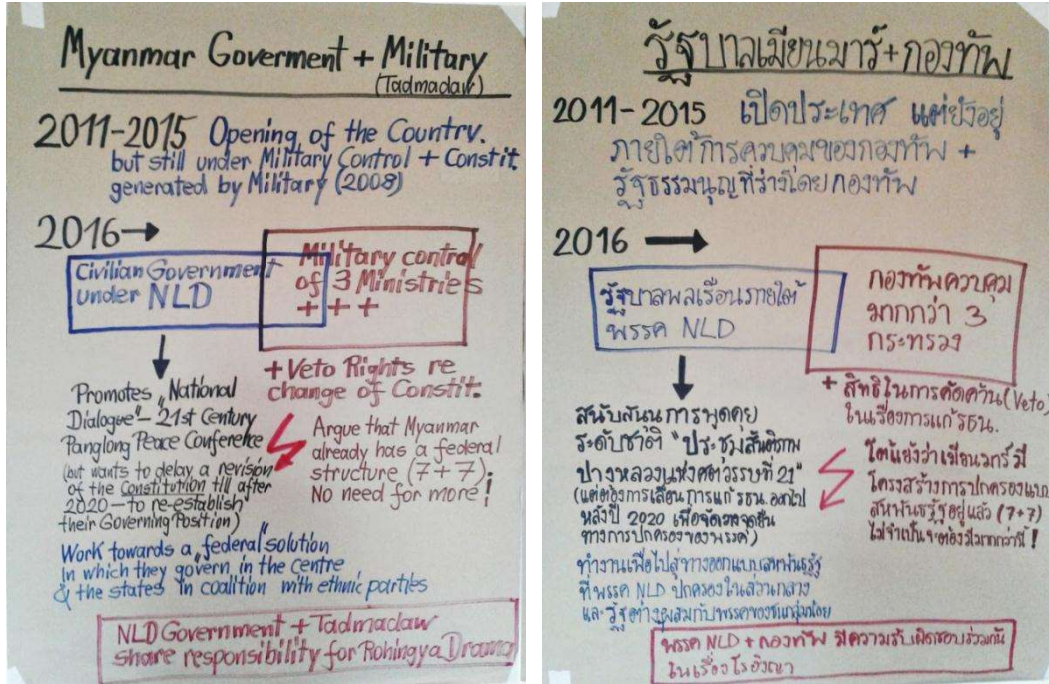 Myanmar Goverment + Military
(Tadmadaw)
2011-2015 Opening of the Country.
but still under Military Control + Constit.
generated by Military (2008)
2016→
Civilian Government
under NLD
Military control
of 3 Ministries
+ + +
+ Veto Rights re
change of Constit.
Promotes „National
Dialogue"– 21st Century
Panglong Peace Conference
(but wants to delay a revision
of the Constitution till after
2020 – to re-establish
their Governing Position)
Argue that Myanmar
already has a federal
structure (7+7)
No need for more!
Work towards a „federal" solution
in which they govern in the centre
& the states in coalition with ethnic parties
NLD Government + Tadmadaw
share responsibility for Rohingya Drama
รัฐบาลเมียนมาร์+กองทัพ
2011-2015 เปิดประเทศ แต่ยังอยู่
ภายใต้การควบคุมของกองทัพ +
รัฐธรรมนุญที่ร่างโดยกองทัพ
2016 →
รัฐบาลพลเรือนภายใต้
พรรค NLD
กองทัพควบคุม
มากกว่า 3
กระทรวง
+ สิทธิในการคัดค้าน (Veto)
ในเรื่องการแก้ รธน.
สนับสนุนการพูดคุย
ระดับชาติ "ประชุมสันติภาพ
ปางหลวงแห่งศตวรรษที่ 21"
(แต่ต้องการเลื่อนการแก้ รธน. ออกไป
หลังปี 2020 เพื่อ
ทางการปกครองของพรรค)
โต้แย้งว่าเมียนมาร์มี
โครงสร้างการปกครองแบบ
สหพันธรัฐอยู่แล้ว (7+7)
ไม่จำเป็นจะต้องมีมากกว่านี้!
ทำงานเพื่อไปสู่ทางออกแบบสหพันธรัฐ
ที่พรรค NLD ปกครองในส่วนกลาง
และรัฐต่างๆผสมกับพรรคของชนกลุ่มน้อย
พรรค NLD + กองทัพ มีความรับผิดชอบร่วมกัน
ในเรื่องโรฮิงญา